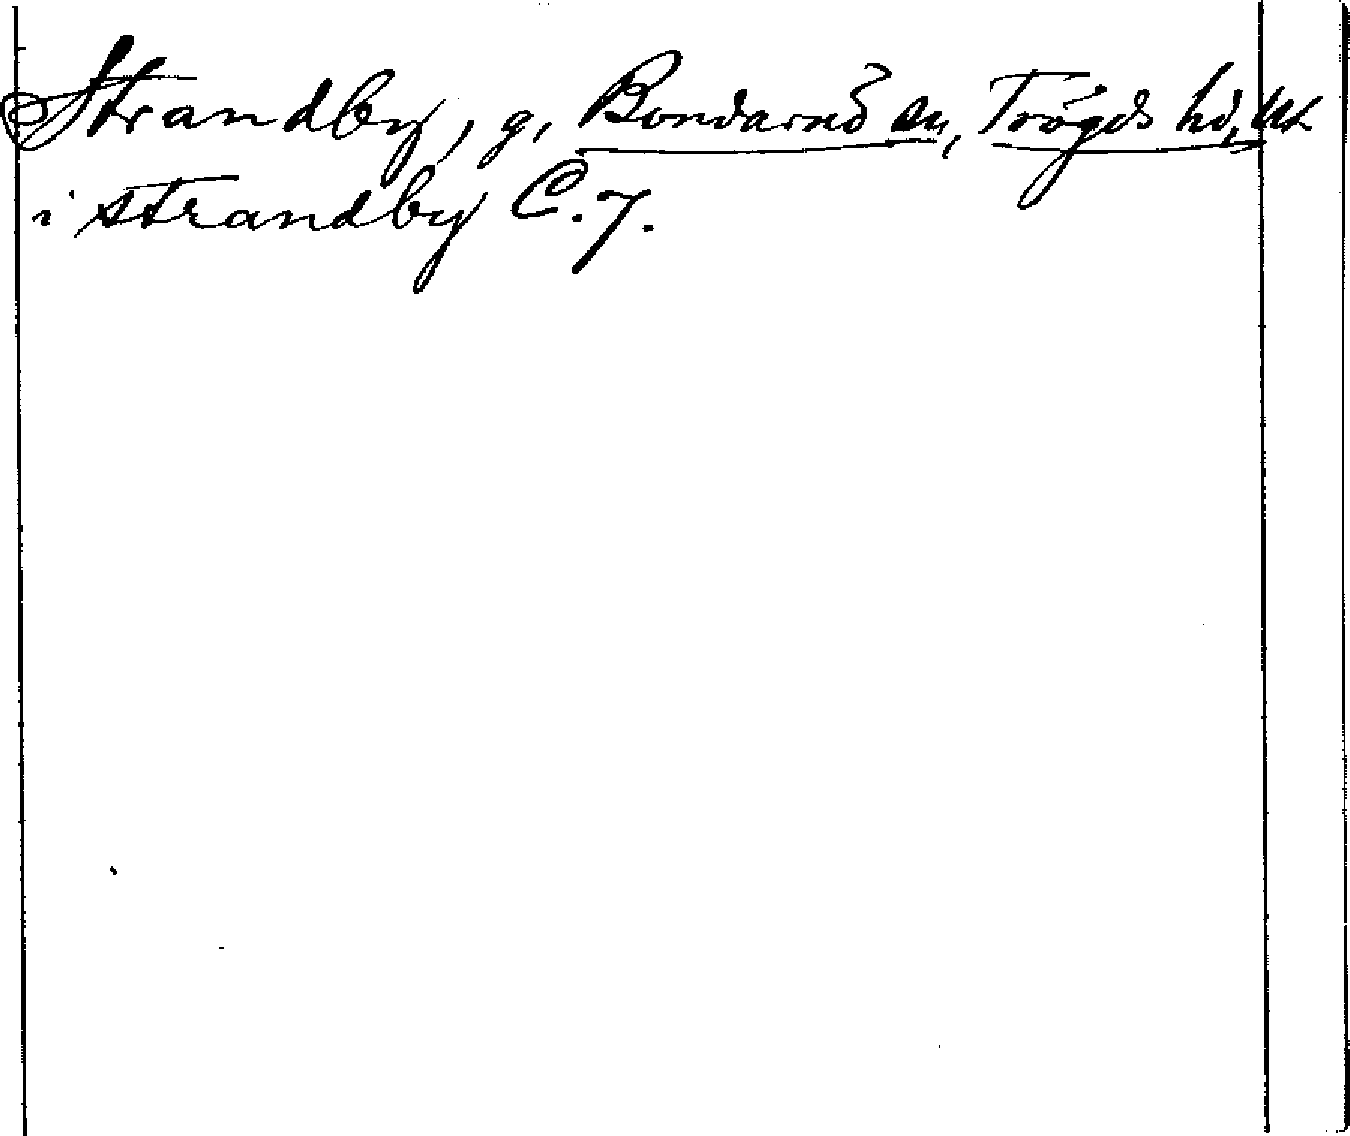 Strandby, g, Bondarnö sn, Trögds hd, Ul
i strandby C. 7.